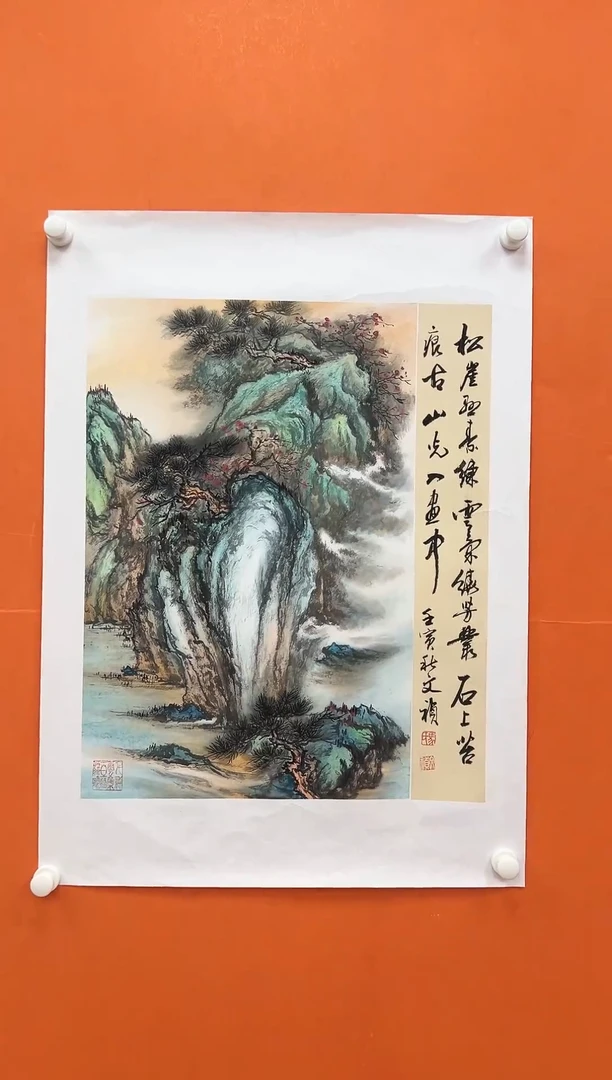 松崖春綠雲氣繞芳叢石上苔
痕古山光入畫中
壬寅秋文禎